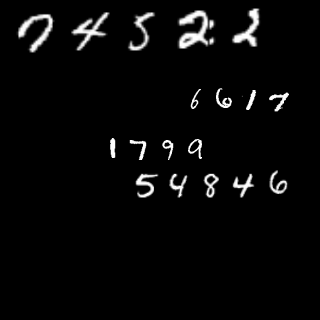 74522
6617
1799
54846